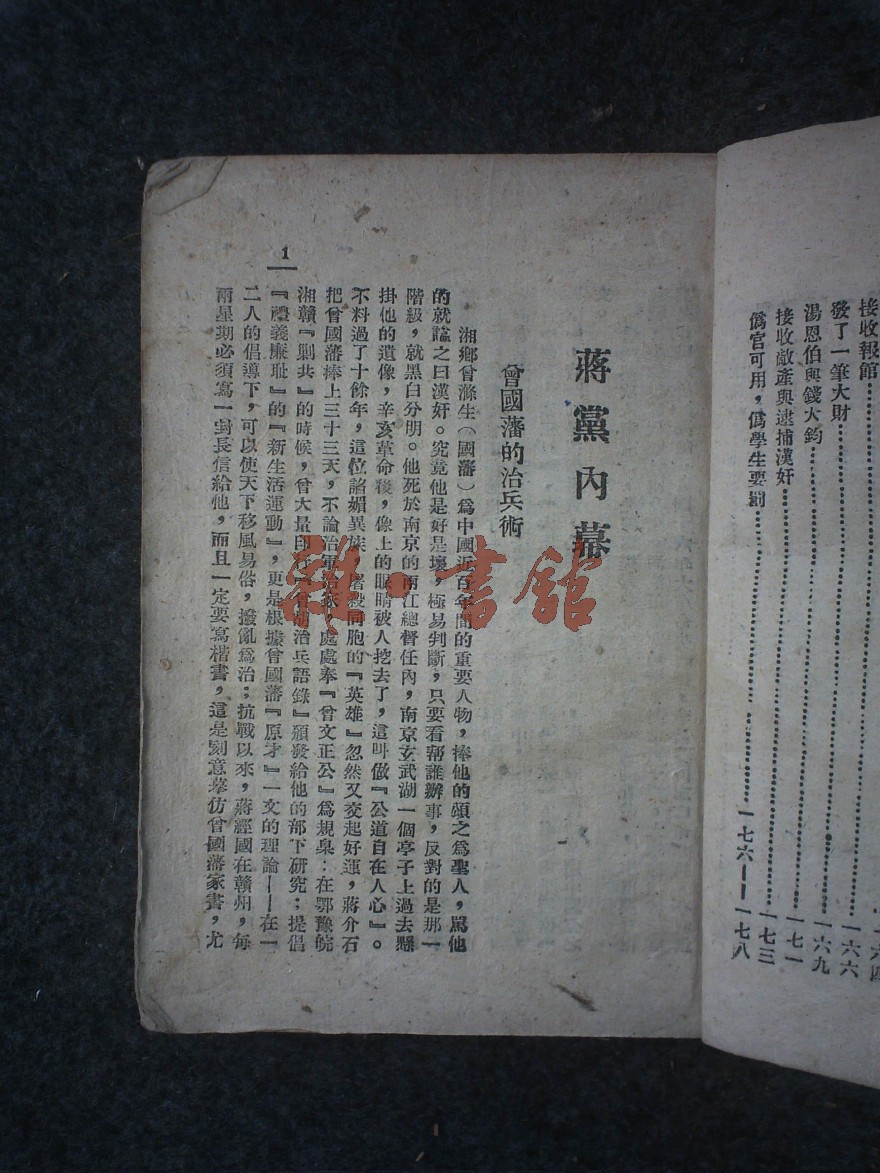 接收報館
發了一筆大財……一六六
湯恩伯與錢大鈞……一六九
接收敵產與逮捕漢奸……一七一
僞官可用，僞學生要罰……一七三
一七六——一七八
蔣黨內幕
曾國藩的治兵術
湘鄉曾滌生（國藩）爲中國近百年間的重要人物，捧他的頌之爲聖人，罵他
的就謚之曰漢奸。究竟他是好是壞，極易判斷，只要看幫誰辦事，反對的是那一
階級，就黑白分明。他死於南京的兩江總督任內，南京玄武湖一個亭子上過去懸
掛他的遺像，辛亥革命後，像上的眼睛被人挖去了，這叫做『公道自在人心』。
不料過了十餘年，這位諂媚異族，屠殺同胞的『英雄』忽然又交起好運，蔣介石
把曾國藩捧上三十三天，不論治軍治家，處處奉『曾文正公』爲規臬：在鄂豫皖
湘贛『剿共』的時候，曾大量印行『曾胡治兵語錄』頒發給他的部下研究；提倡
『禮義廉恥』的『新生活運動』，更是根據曾國藩『原才』一文的理論——在一
二人的倡導下，可以使天下移風易俗，撥亂爲治；抗戰以來，蔣經國在贛州，每
兩星期必須寫一封長信給他，而且一定要寫楷書，這是刻意摹仿曾國藩家書，尤
1
雜·書館